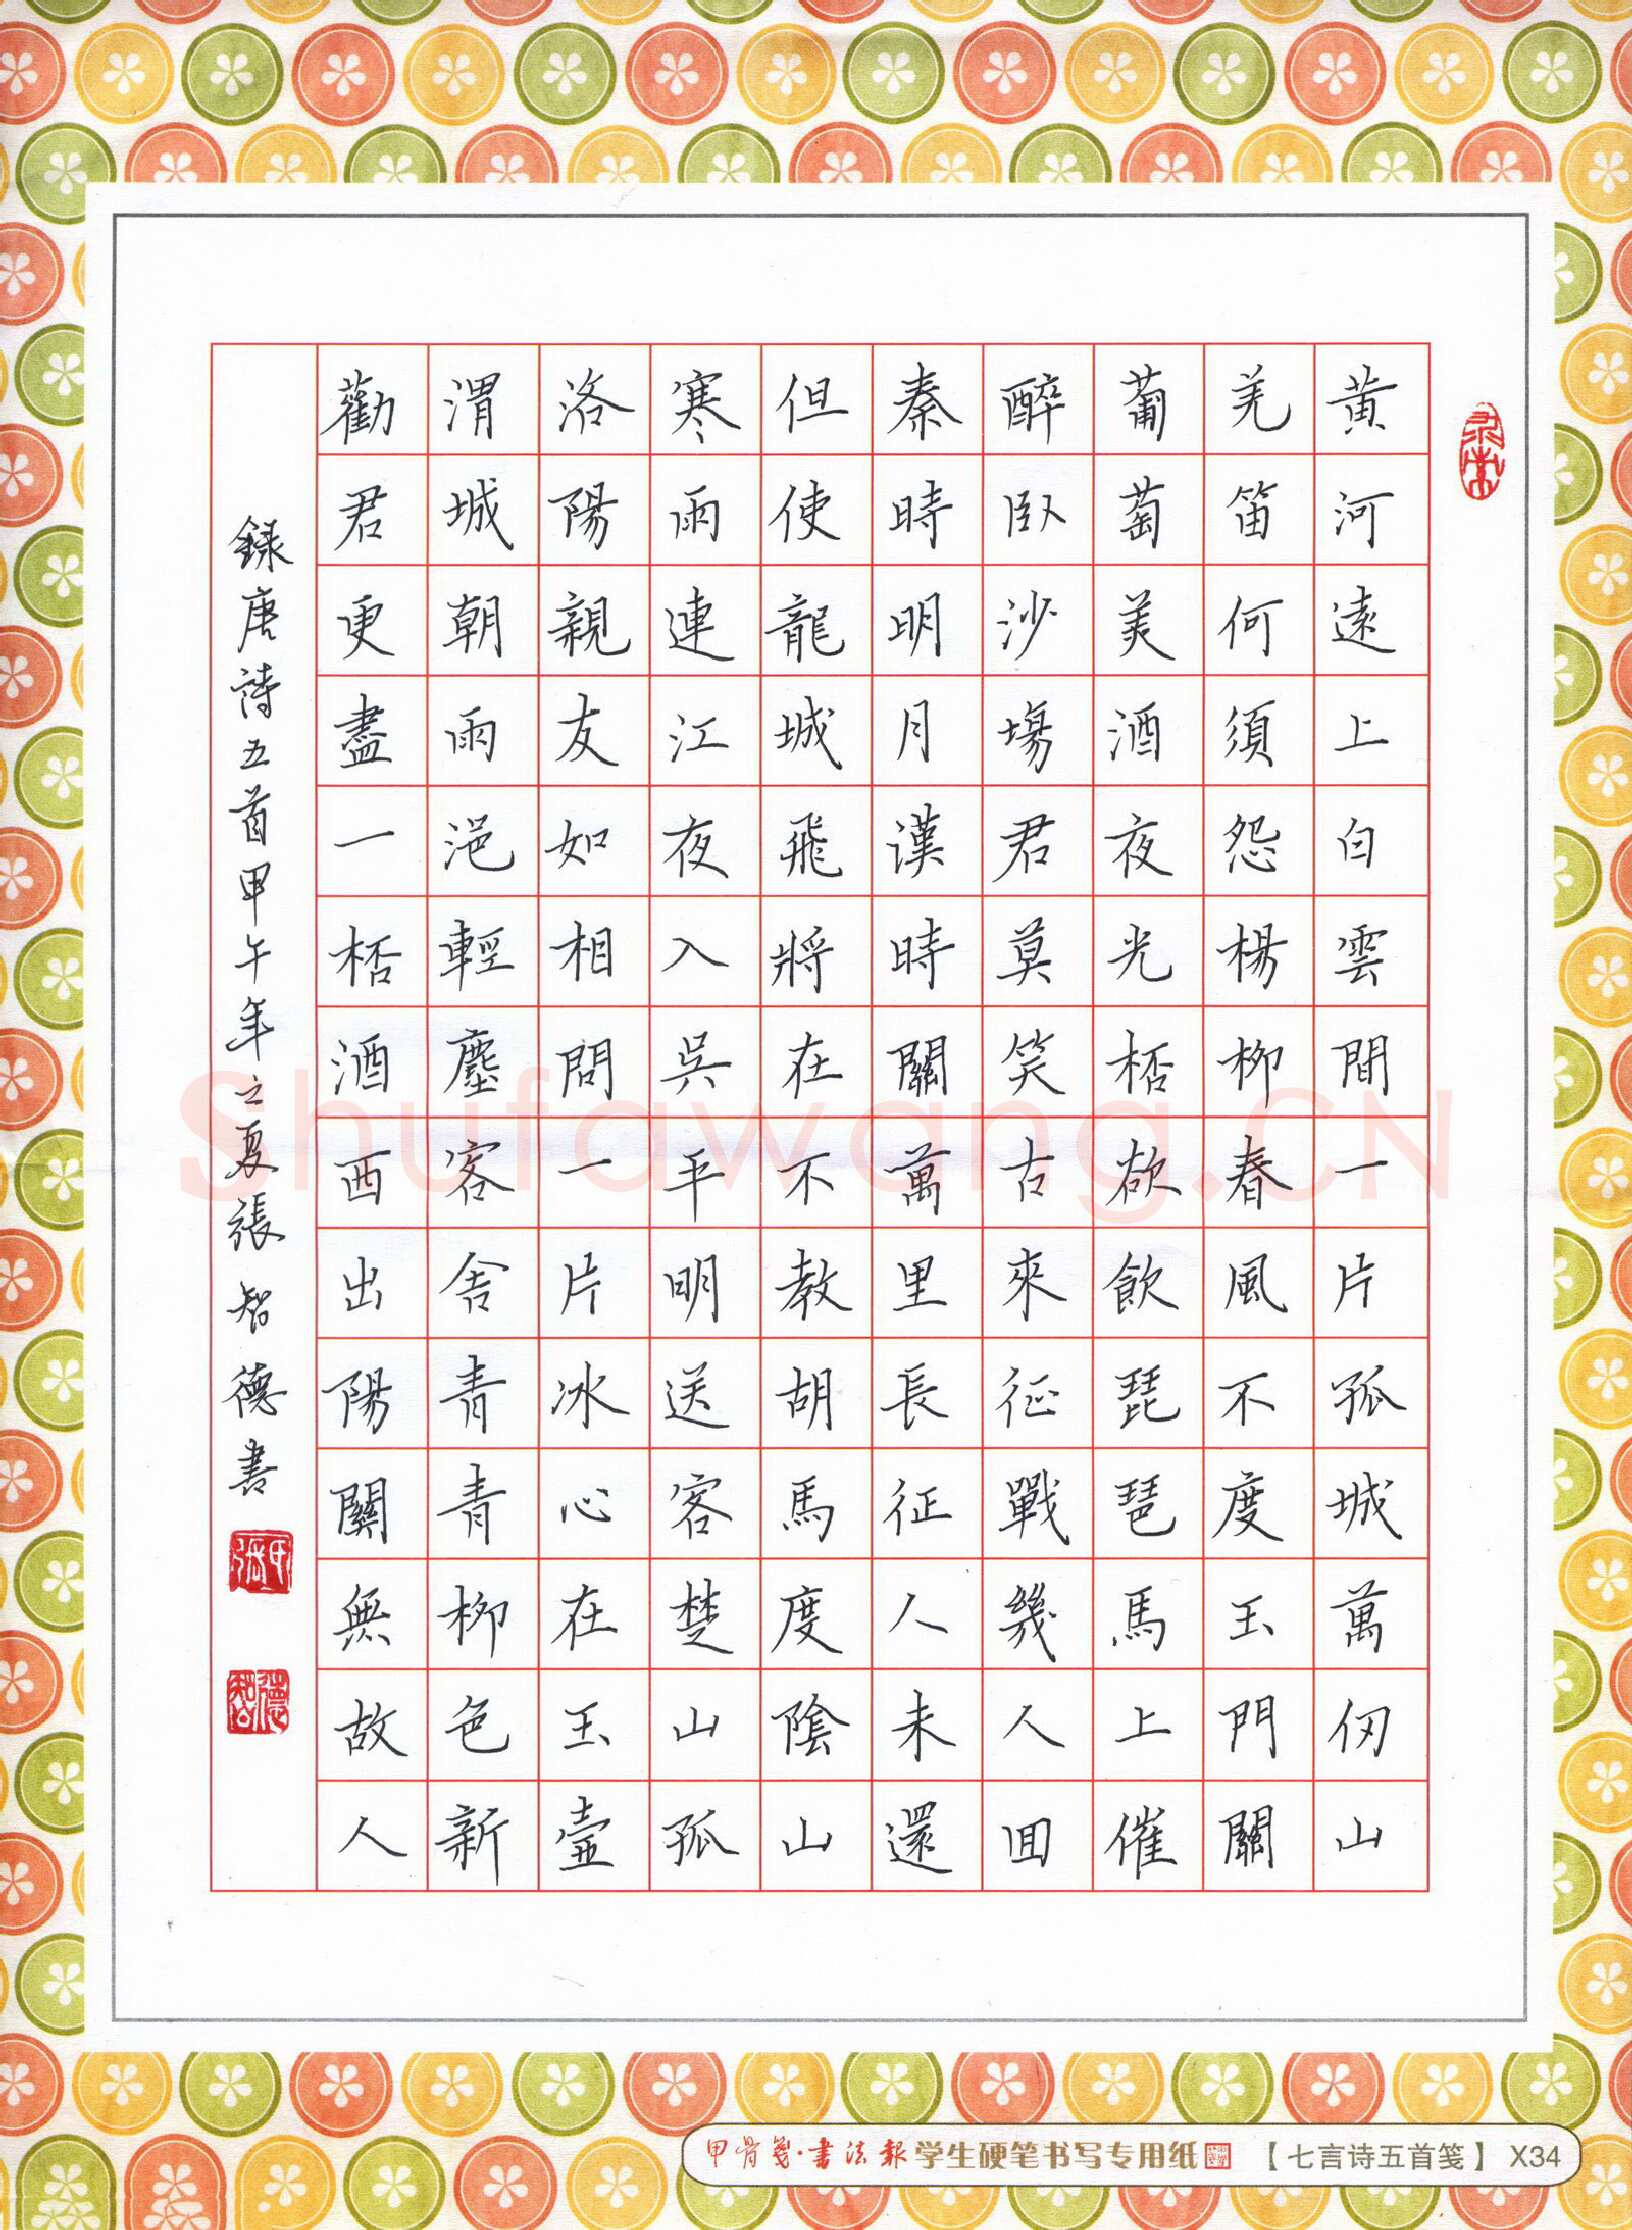 黄河遠上白雲間一片孤城萬仞山
羌笛何須怨楊柳春風不度玉門關
葡萄美酒夜光桮欲飲琵琶馬上催
醉卧沙場君莫笑古來征戰幾人囬
秦時明月漢時關萬里長征人未還
但使龍城飛將在不教胡馬度陰山
寒雨連江夜入吳平明送客楚山孤
洛陽親友如相問一片冰心在玉壺
渭城朝雨浥輕塵客舍青青柳色新
勸君更盡一桮酒西出陽關無故人
録唐詩五首甲午年之夏張智德書
智德
Shufawang.CN
甲骨笺·书法報学生硬笔书写专用纸【七言诗五首笺】 X34